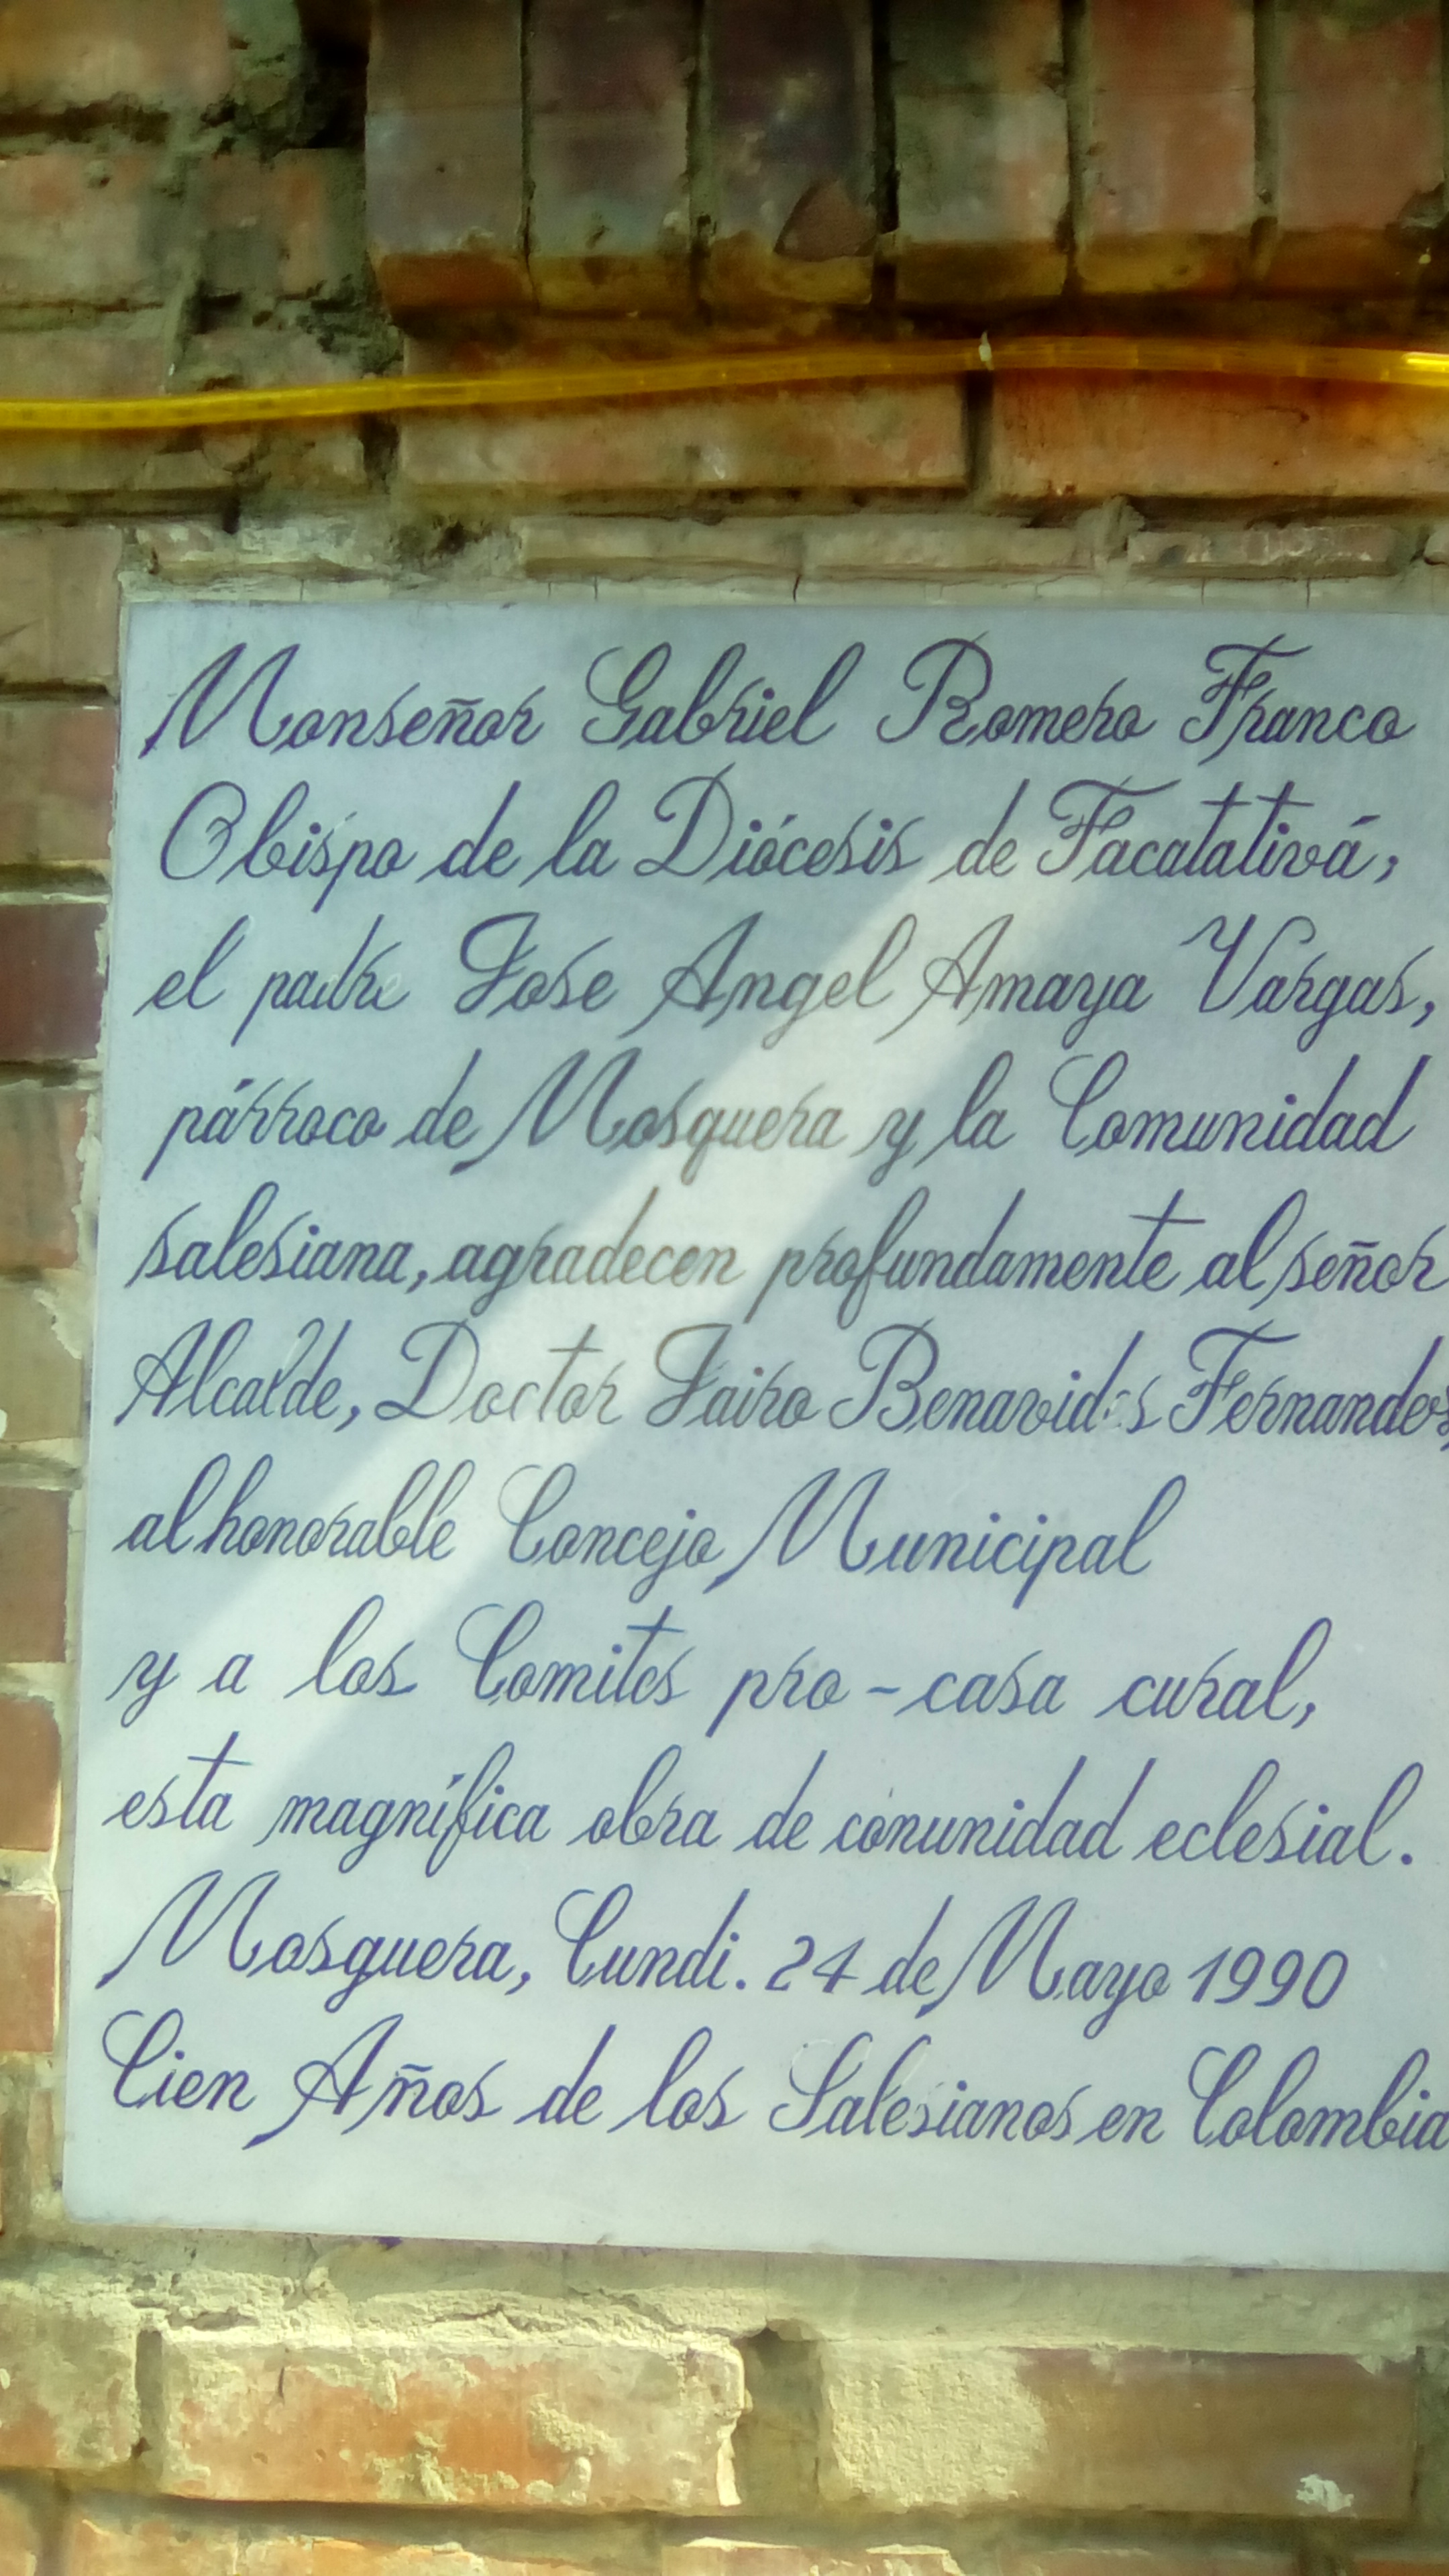 Monseñor Gabriel Romero Franco
Obispo de la Diócesis de Facatativá,
el padre Jose Angel Amaya Vargas,
párroco de Mosquera y la Comunidad
salesiana, agradecen profundamente al señor
Alcalde, Doctor Jairo Benavides Fernandes,
al honorable Concejo Municipal
y a los Comites pro-casa cural,
esta magnífica obra de conunidad eclesial.
Mosquera, Cundi. 24 de Mayo 1990
Cien Años de los Salesianos en Colombia